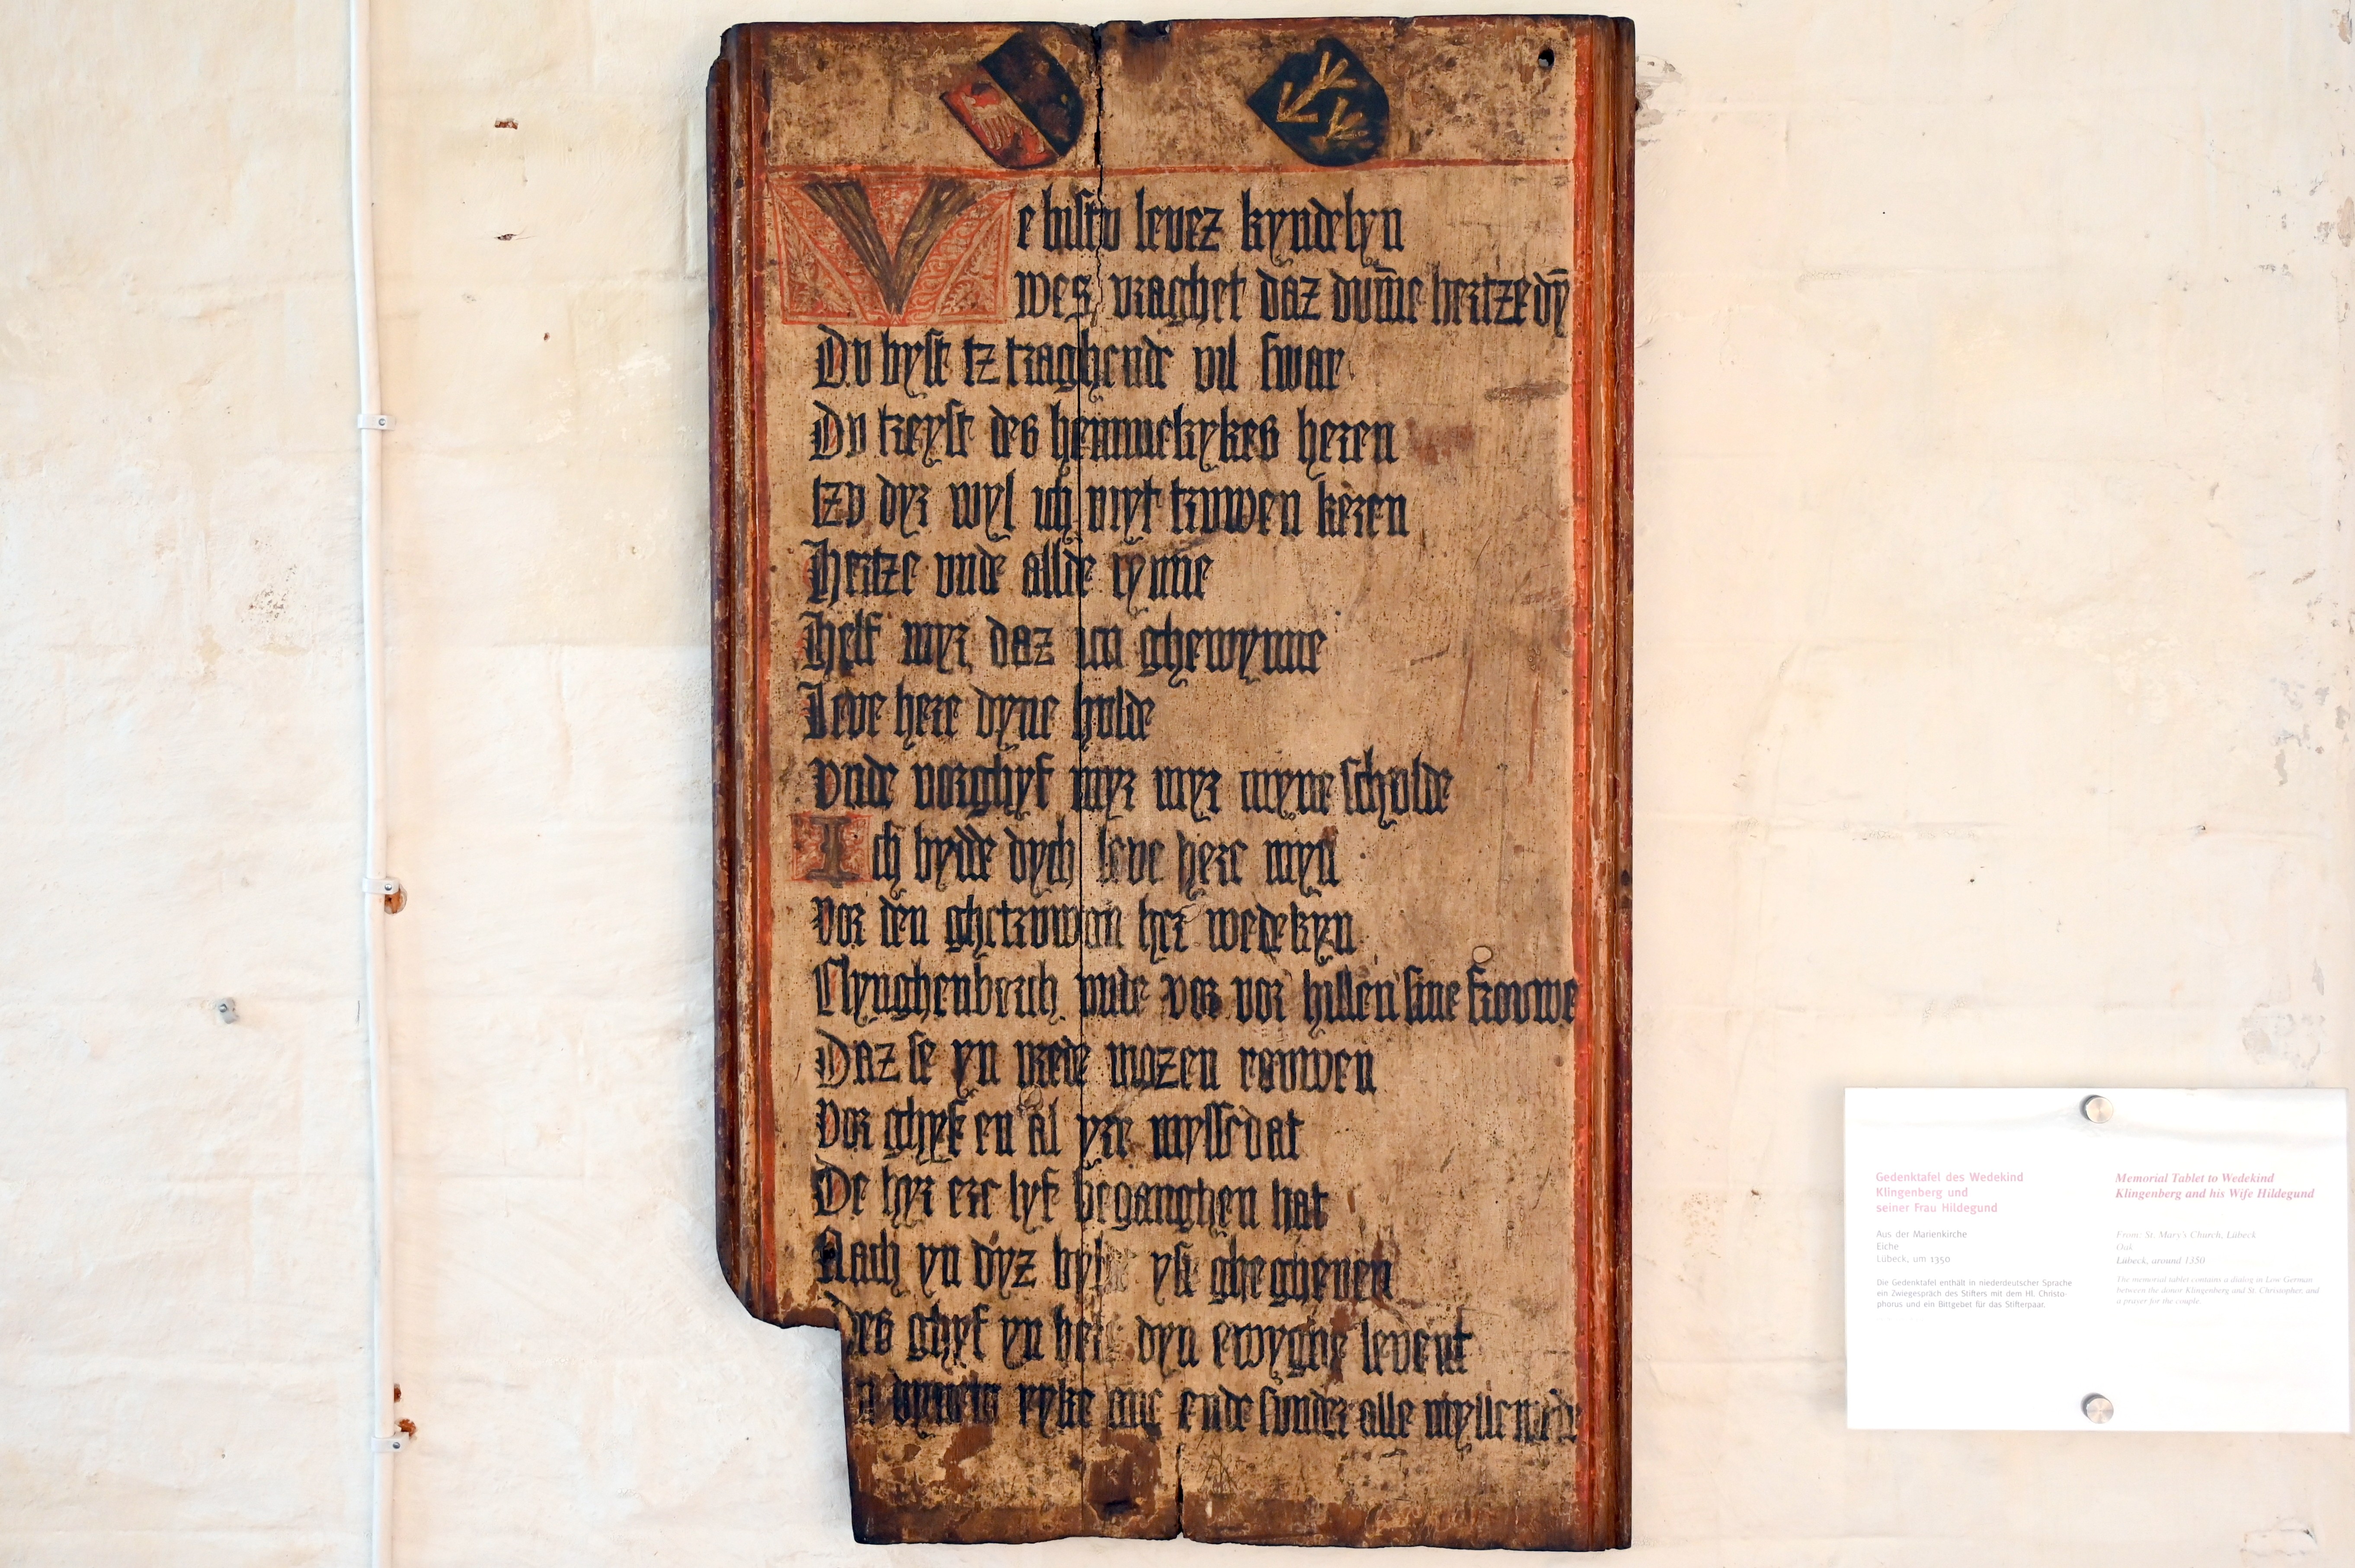 Ve bistv levez kyndelyn
wes vraghet daz dvm̄e hertze dȳ
Dv byst tz traghende vil swar
Dv treyst des hemmelrykes heren
tzv dyr wyl ich myt truwen keren
Hertze vnde allde synne
Help myr daz ich ghewynne
Leve here dyne hvlde
vnde vorghyf myr myr myne schvlde
Ich bydde dych leve here myn
vor den ghetruwen her wedekyn
Clynghenberch vnde vor vor hillen sine frovwe
Daz se yn vrede mozen rovwen
vor ghyf en al yre myssedat
De hyr ere lyf beganghen hat
Nach yn dyz byl yst gheghenen
des ghyf yn here dyn ewyghe levent
ryke ane ende svnder alle
Gedenktafel des Wedekind
Klingenberg und
seiner Frau Hildegund
Aus der Marienkirche
Eiche
Lübeck, um 1350
Die Gedenktafel enthält in niederdeutscher Sprache
ein Zwiegespräch des Stifters mit dem Hl. Christo-
phorus und ein Bittgebet für das Stifterpaar.
Memorial Tablet to Wedekind
Klingenberg and his Wife Hildegund
From: St. Mary's Church, Lübeck
Oak
Lübeck, around 1350
The memorial tablet contains a dialog in Low German
between the donor Klingenberg and St. Christopher, and
a prayer for the couple.